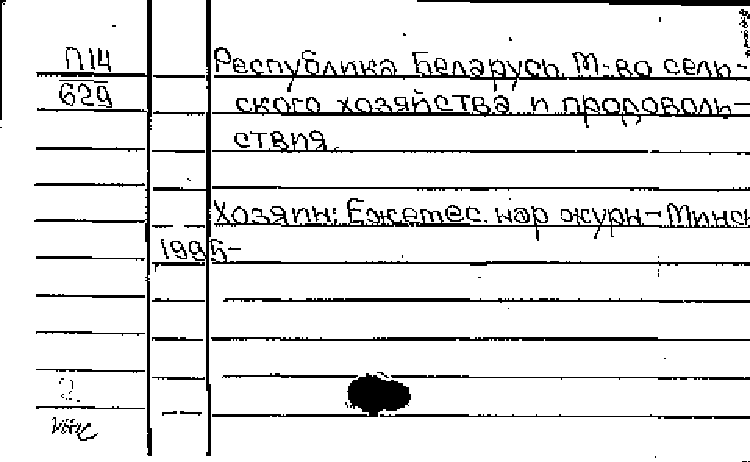 П14
629
Республика Беларусь. М-во сель-
ского хозяйства и продоволь-
ствия.
Хозяин: Ежемес. нар журн-Минск
1995-
2